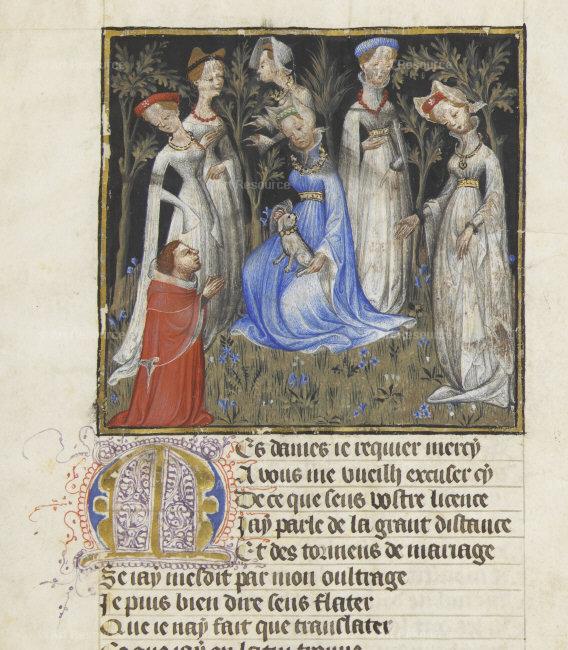 Resource
MEs dames ie requier mercy
A vous me vueilh excuser cy
De ce que sens vostre licence
Jay parle de la grant distance
Et des tormens de mariage
Se iay mesdit par mon oultrage
Je puis bien dire sens flater
Que ie nay fait que translater
Ce que iay en latin trouve